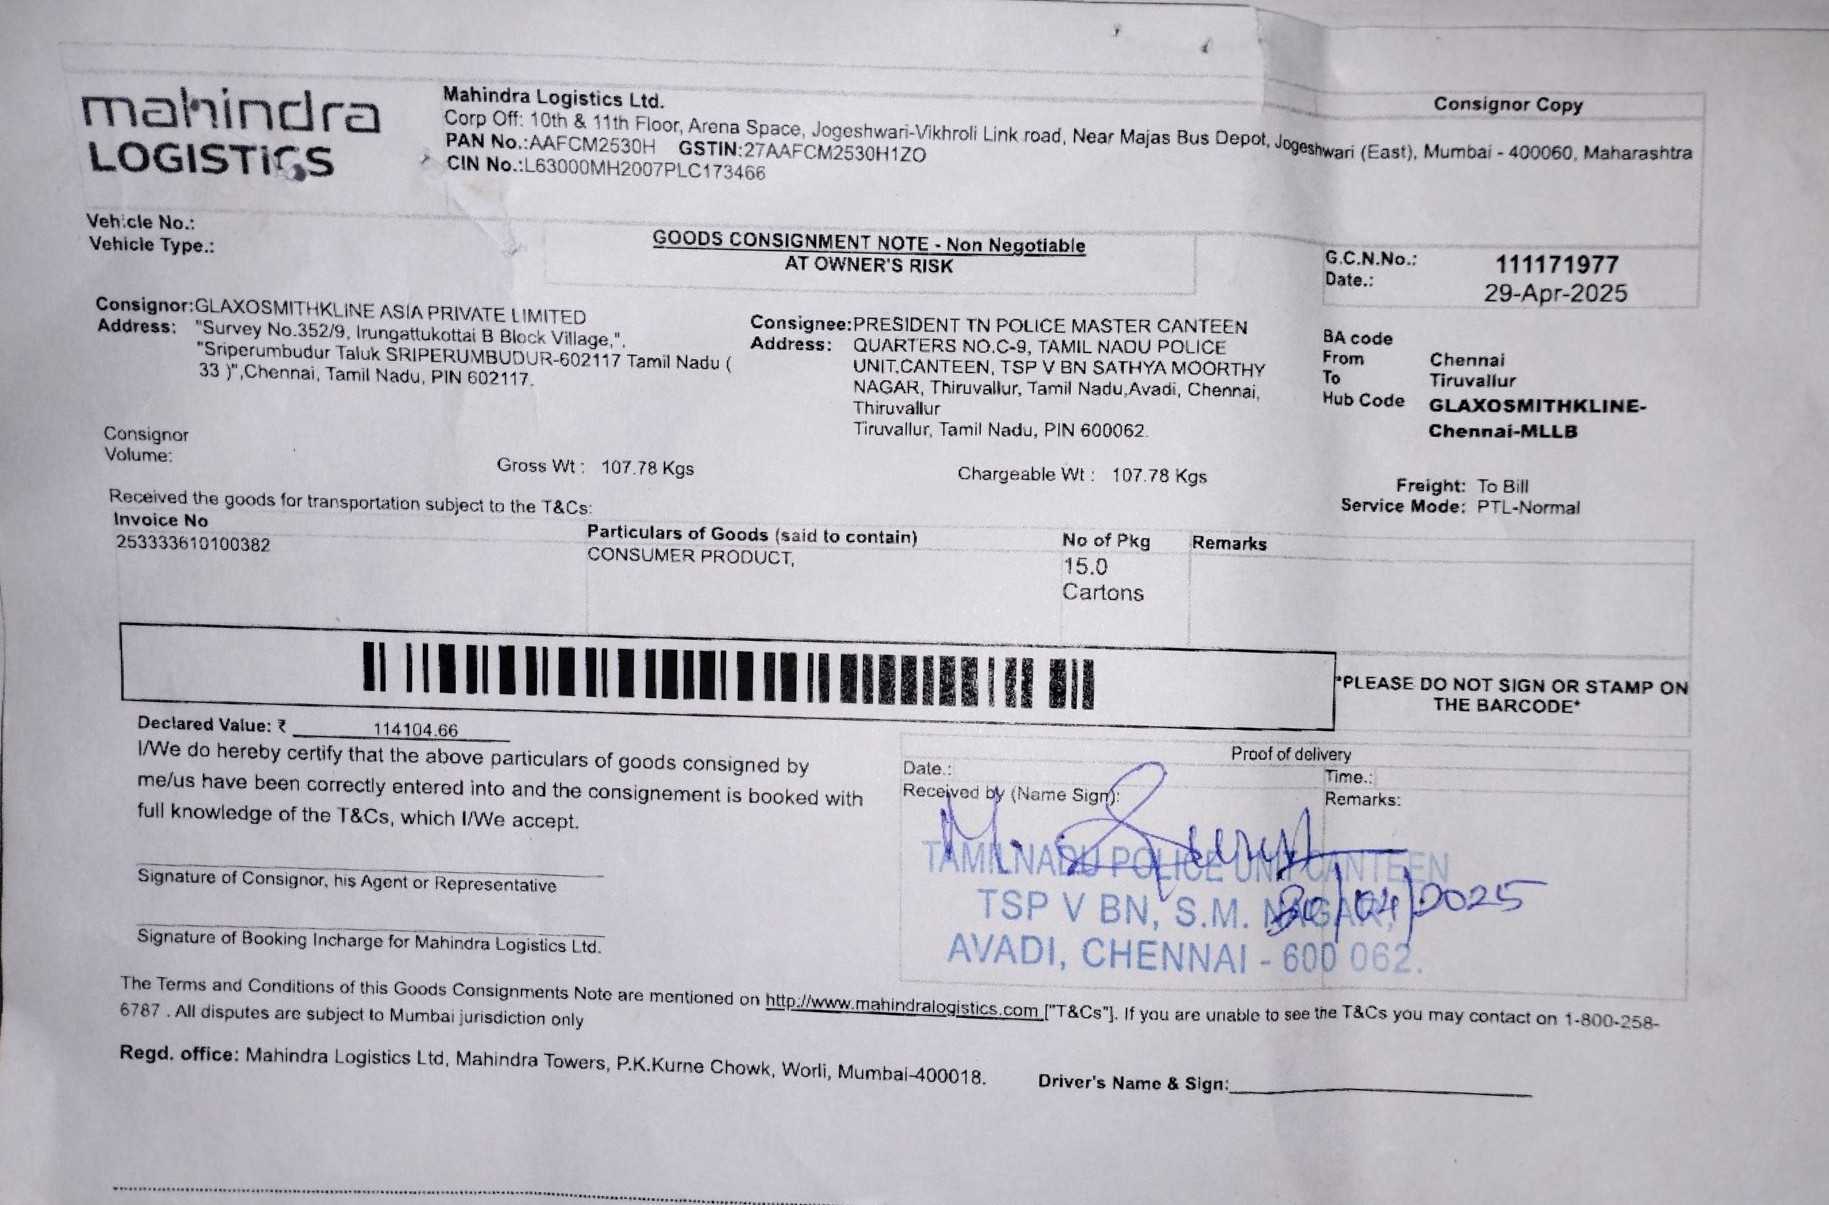 mahindra
LOGISTICS
Mahindra Logistics Ltd.
Corp Off: 10th & 11th Floor, Arena Space, Jogeshwari-Vikhroli Link road, Near Majas Bus Depot, Jogeshwari (East), Mumbai - 400060, Maharashtra
PAN No.:AAFCM2530H GSTIN:27AAFCM2530H1ZO
CIN No.:L63000MH2007PLC173466
Consignor Copy
Vehicle No.:
Vehicle Type.:
GOODS CONSIGNMENT NOTE - Non Negotiable
AT OWNER'S RISK
G.C.N.No.: 111171977
Date.: 29-Apr-2025
Consignor:GLAXOSMITHKLINE ASIA PRIVATE LIMITED
Address: "Survey No.352/9, Irungattukottai B Block Village,",
"Sriperumbudur Taluk SRIPERUMBUDUR-602117 Tamil Nadu (
33 )",Chennai, Tamil Nadu, PIN 602117.
Consignee:PRESIDENT TN POLICE MASTER CANTEEN
Address: QUARTERS NO.C-9, TAMIL NADU POLICE
UNIT.CANTEEN, TSP V BN SATHYA MOORTHY
NAGAR, Thiruvallur, Tamil Nadu,Avadi, Chennai,
Thiruvallur
Tiruvallur, Tamil Nadu, PIN 600062.
BA code
From Chennai
To Tiruvallur
Hub Code GLAXOSMITHKLINE-
Chennai-MLLB
Consignor
Volume:
Gross Wt : 107.78 Kgs
Chargeable Wt : 107.78 Kgs
Freight: To Bill
Service Mode: PTL-Normal
Received the goods for transportation subject to the T&Cs:
Invoice No
253333610100382
Particulars of Goods (said to contain)
CONSUMER PRODUCT,
No of Pkg
15.0
Cartons
Remarks
*PLEASE DO NOT SIGN OR STAMP ON
THE BARCODE*
Declared Value: ₹ 114104.66
I/We do hereby certify that the above particulars of goods consigned by
me/us have been correctly entered into and the consignement is booked with
full knowledge of the T&Cs, which I/We accept.
Signature of Consignor, his Agent or Representative
Signature of Booking Incharge for Mahindra Logistics Ltd.
Proof of delivery
Date.:
Time.:
Received by (Name Sign):
Remarks:
TAMILNADU POLICE UNIT CANTEEN
TSP V BN, S.M. NAGAR,
30/04/2025
AVADI, CHENNAI - 600 062.
The Terms and Conditions of this Goods Consignments Note are mentioned on http://www.mahindralogistics.com ["T&Cs"]. If you are unable to see the T&Cs you may contact on 1-800-258-
6787 . All disputes are subject to Mumbai jurisdiction only
Regd. office: Mahindra Logistics Ltd, Mahindra Towers, P.K.Kurne Chowk, Worli, Mumbai-400018.
Driver's Name & Sign: